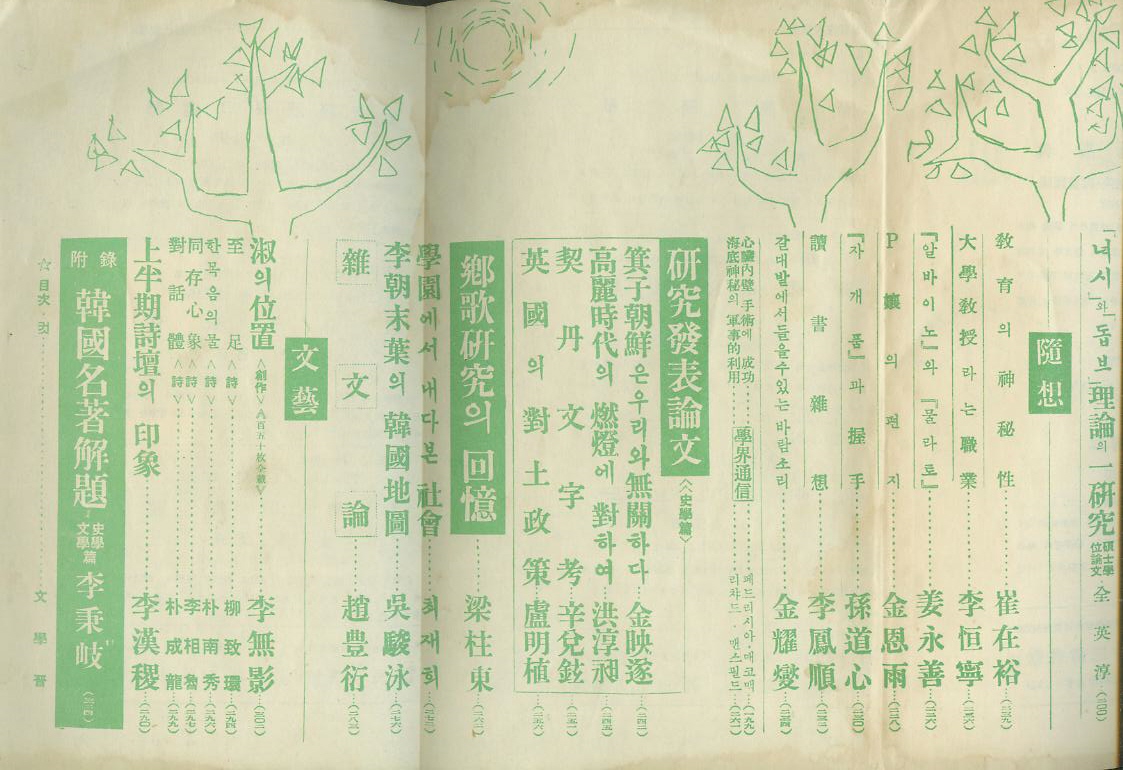 「넉시」와 「돕브」理論의 一硏究 碩士學位論文 全英淳
隨想
敎育의 神秘性 崔在裕
大學敎授라는 職業 李恒寧
『알바이노』와 『물라토』 姜永善
P孃의 편지 金恩雨
『자개품』과 握手 孫道心
讀書雜想 李鳳順
갈대발에서 들을 수 있는 바람소리 金耀燮
學界通信
心臟內壁 手術에 成功 페드리시아·매코맥
海底神秘의 軍事的利用 리챠드·맨스필드
硏究發表論文
〈史學篇〉
箕子朝鮮은 우리와 無關하다 金映遂
高麗時代의 燃燈에 對하여 洪淳昶
契丹文字考 辛兌鉉
英國의 對土政策 盧明植
鄕歌硏究의 回憶 梁柱東
學園에서 내다본 社會 최재희
李朝末葉의 韓國地圖 吳駿泳
雜文論 趙豊衍
文藝
淑의 位置 〈創作〉〈八百五十枚全載〉 李無影
至足 〈詩〉 柳致環
한목음의 물 〈詩〉 朴南秀
同存心象 〈詩〉 李相魯
對話體 〈詩〉 朴成龍
上半期詩壇의 印象 李漢稷
附錄 韓國名著解題 史學 文學篇 李秉岐
☆目次·컷 文學晋